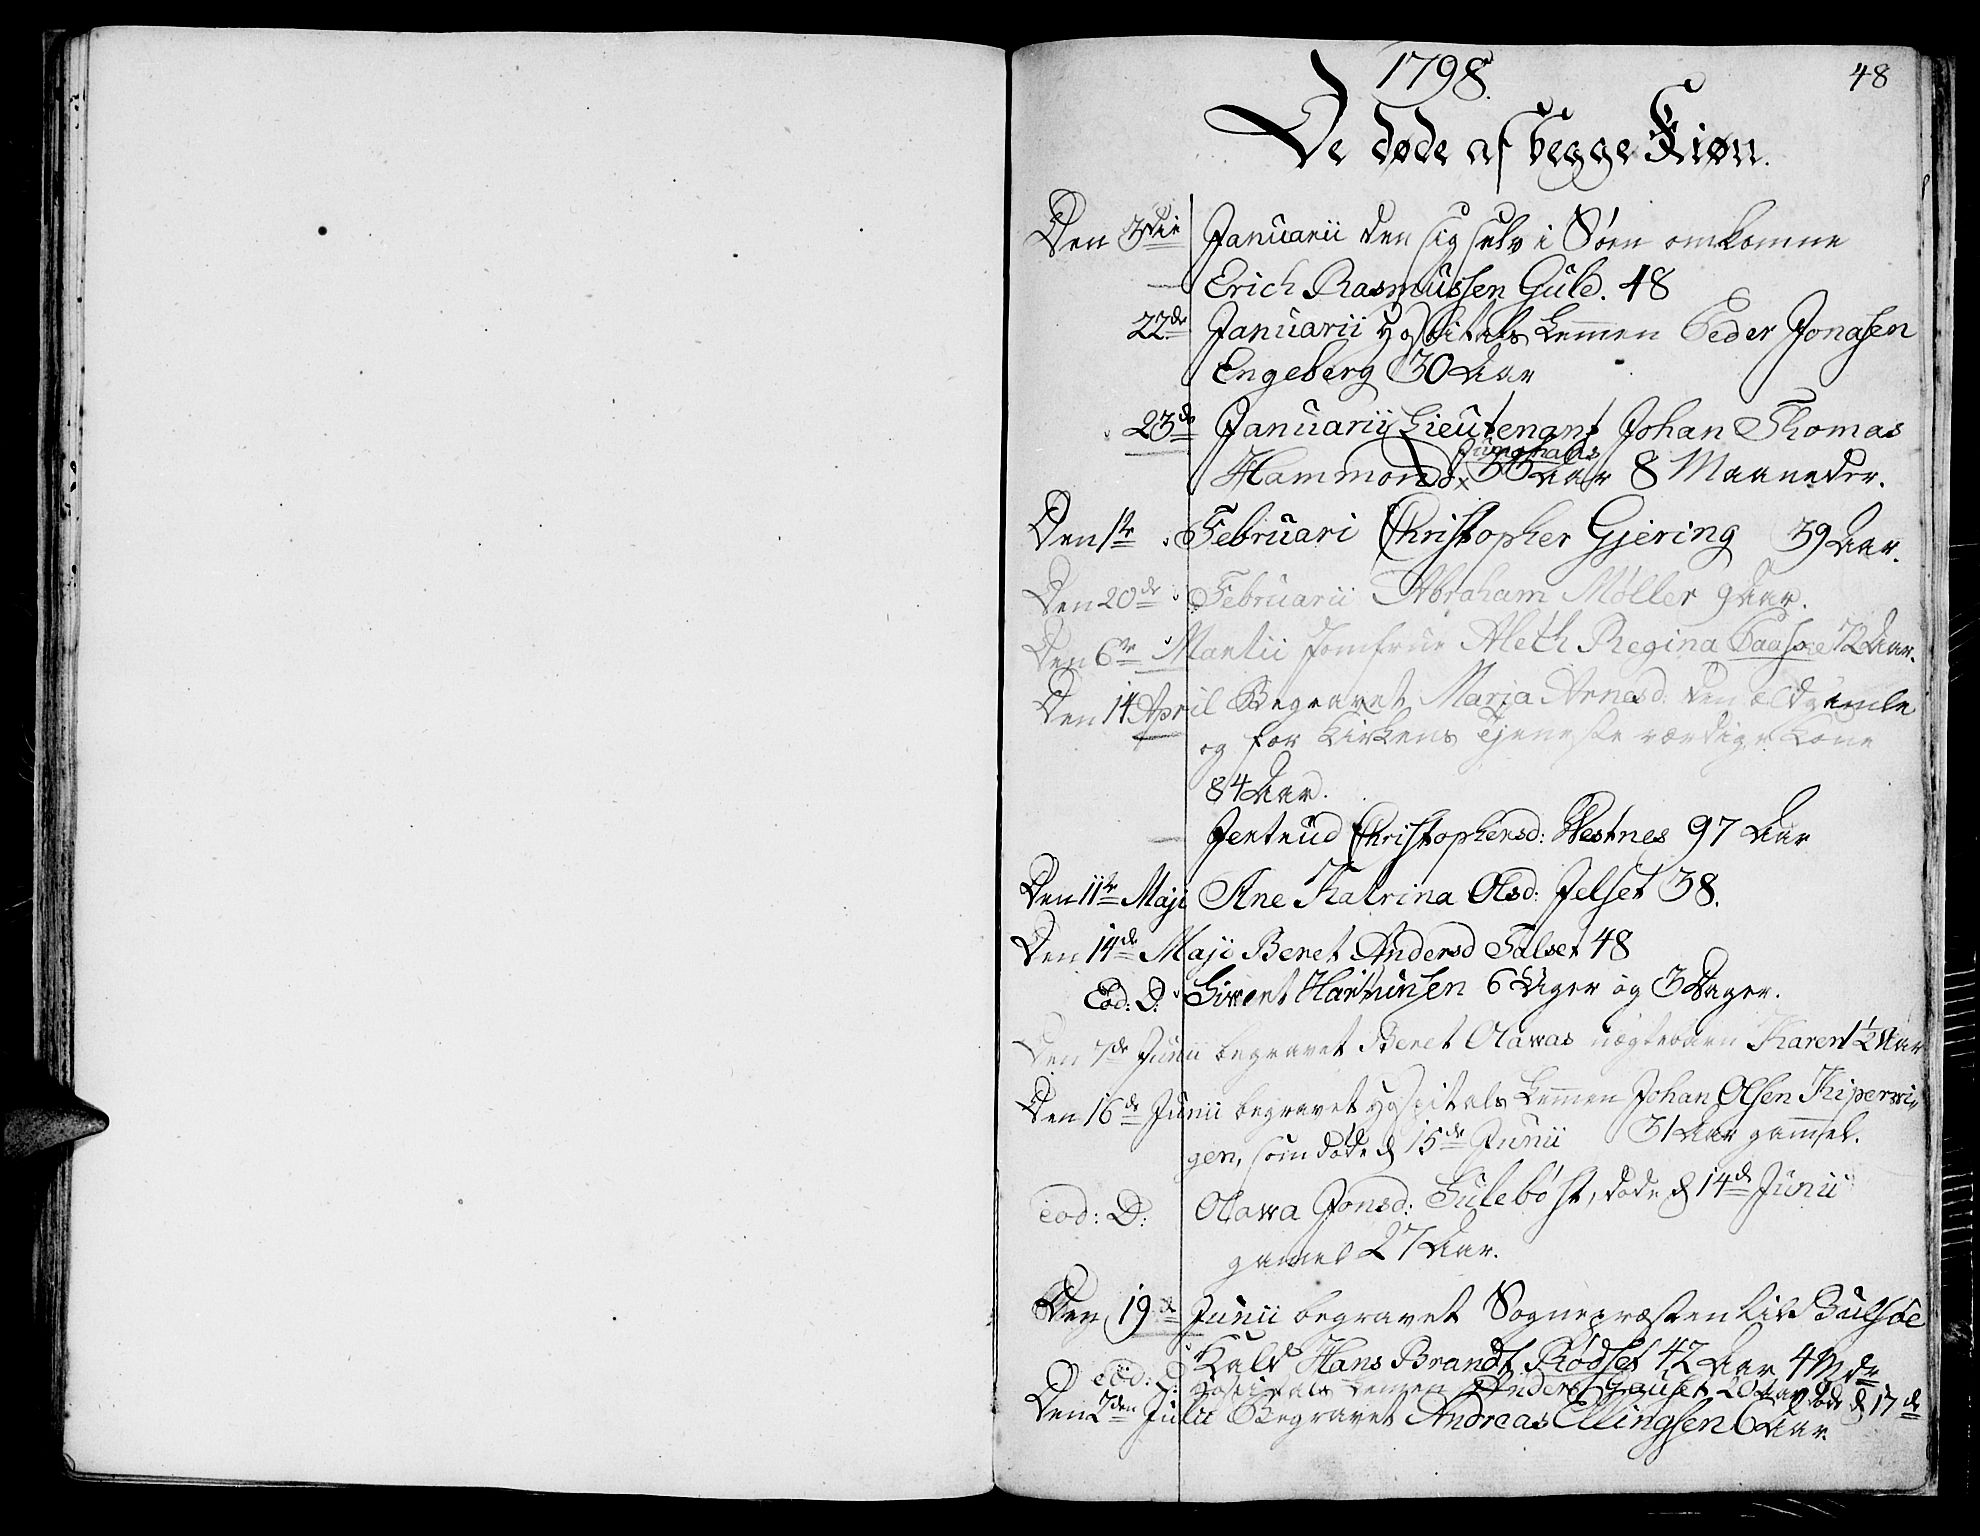 1798.
48
De døde af begge Kiøn.
Den 3die Januarii den sig selv i Søen omkomne
Erich Rasmussen Guld. 48
22de Januarii Hospitals Lemmen Peder Jonasen
Engeberg 30 Aar
23de Januarii Lieutenant Johan Thomas
Junghans
Hammond x 36 Aar 8 Maaneder.
Den 1te Februari Christopher Gjering 39 Aar.
Den 20de Februarii Abraham Møller 9 Aar.
Den 6te Martii Jomfrue Aleth Regina Paaske 72 Aar.
Den 14 April Begravet Maria Arnesd: den ældgamle
og for Kirkens Tjeneste værdige Kone
84 Aar.
Jertrud Christophersd: Westnes 97 Aar
Den 11te Maji Ane Katrina Olsd: Jelset 38.
Den 14de Maji Beret Andersd Talset 48
Eod: D: Siwert 6 Uger og 3 Dager.
Den 7de Junii begravet Beret Olawas uægtebarn Karen 1 1/2 Aar
Den 16de Junii begravet Hospitals Lemmen Johan Olsen Kiperwi-
gen, som døde d 15de Junii 31 Aar gammel.
eod: D: Olawa Jonsd: døde d 14de Junii
gamel 27 Aar.
Den 19de Junii begravet Sognepræsten til Bulsøe
Kald Hans Brandt Rødset 42 Aar 4 Mdr
eod: D: Hospitals Lemmen Anders 20 Aar døde d 17de
Den 7den Julii Begravet Andreas Ellingsen 6 Aar.